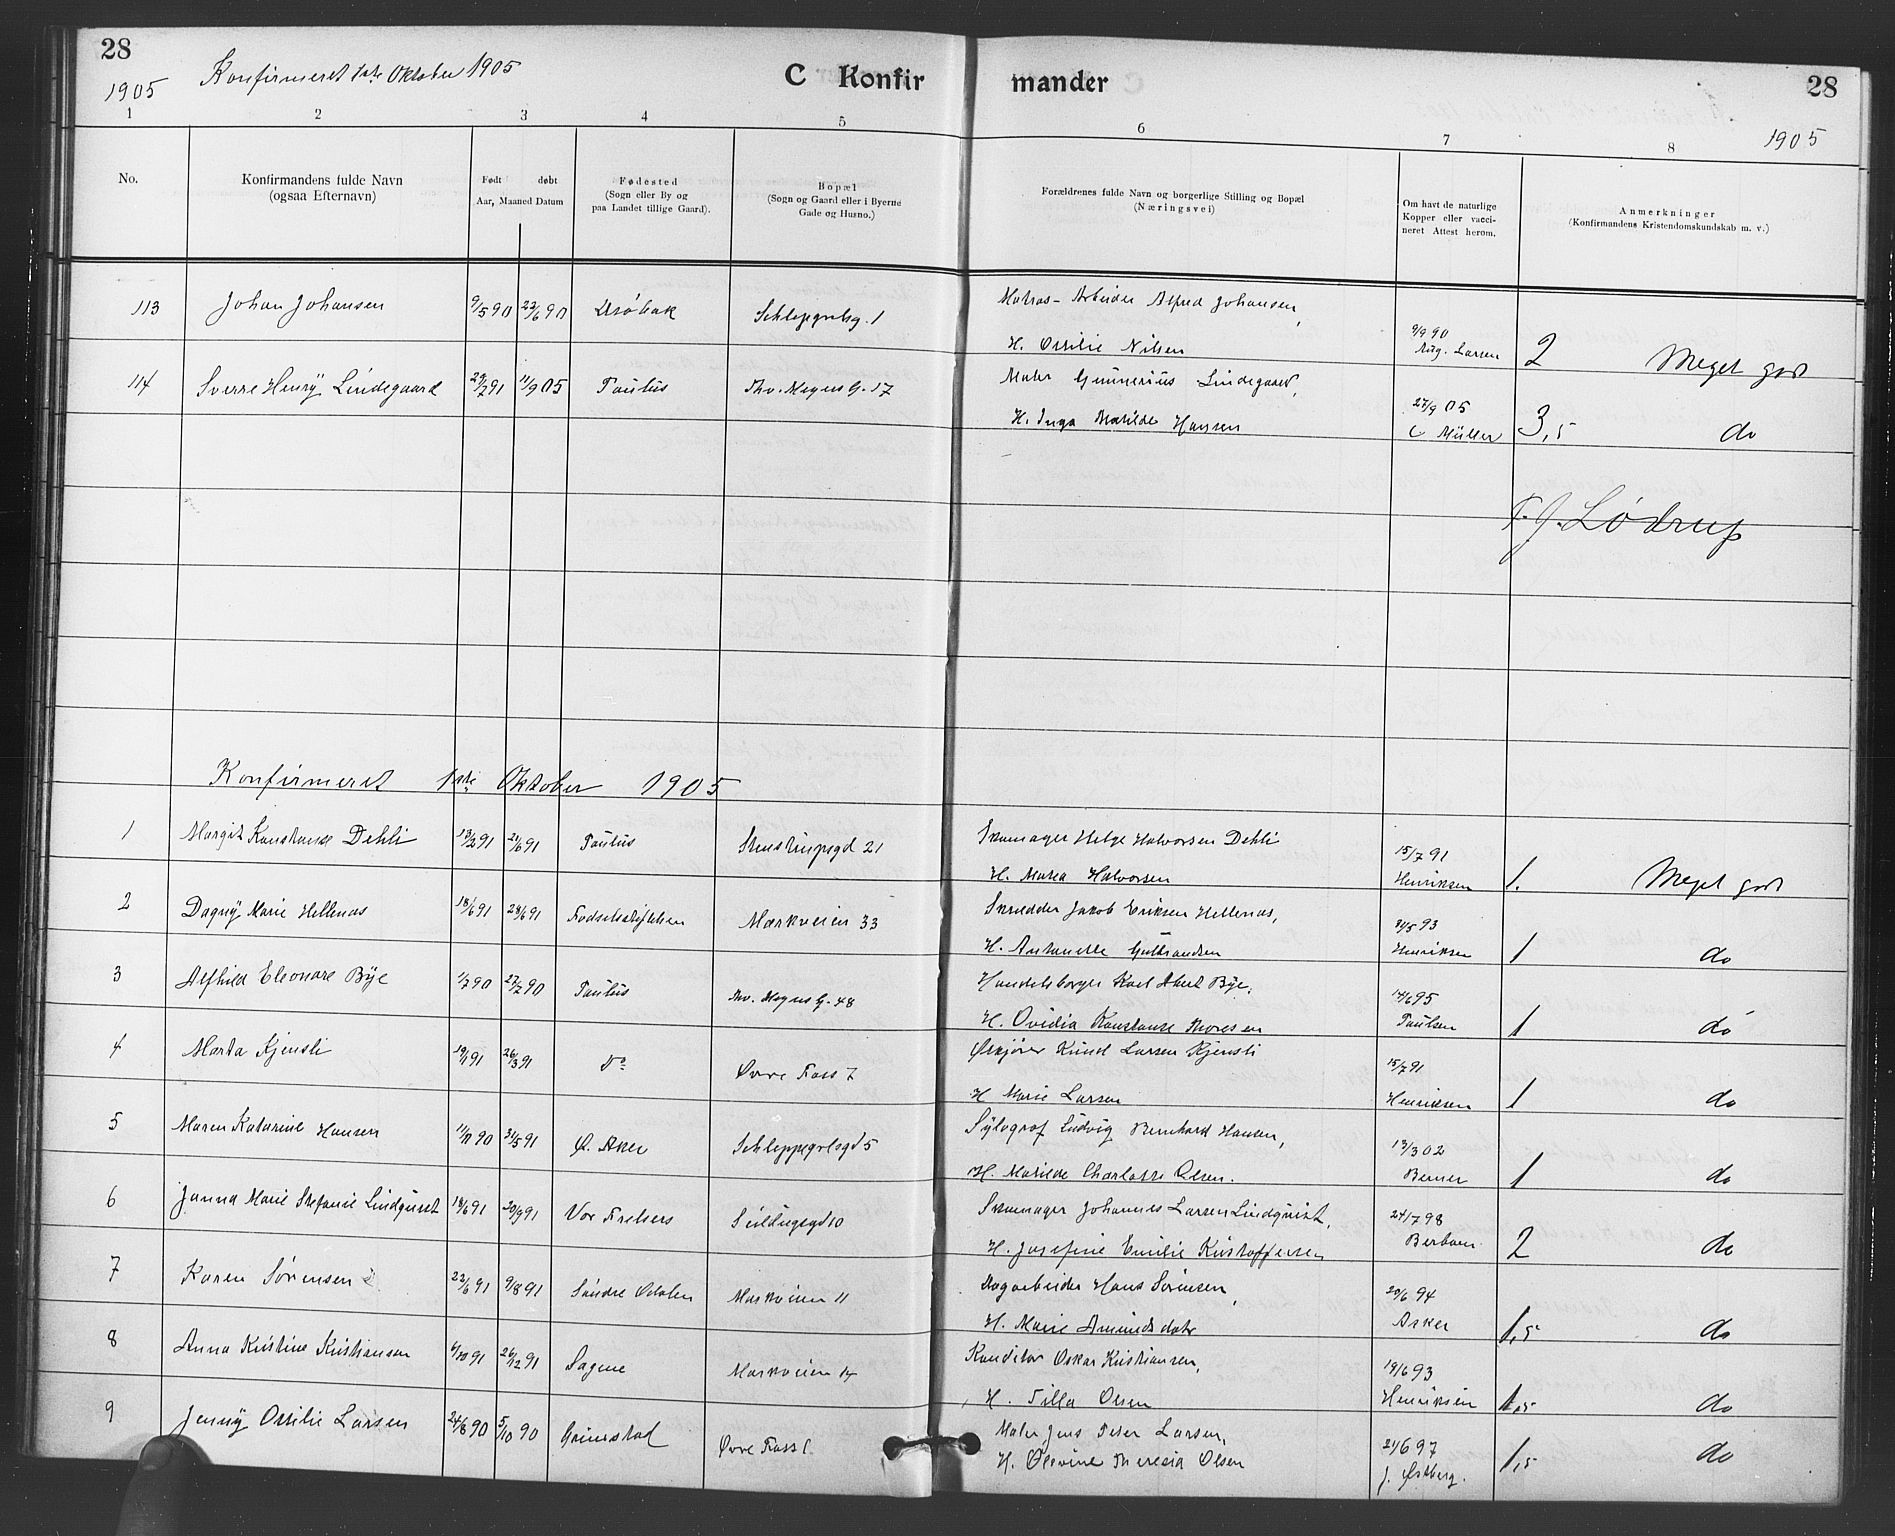 28
Konfirmeret 1ste Oktober 1905
1905
C Konfirmander
28
1905
1 2 3 4 5 6 7 8
No.
Konfirmandens fulde Navn
(ogsaa Efternavn)
Født døbt
Aar, Maaned Datum
Fødested
(Sogn eller By og
paa Landet tillige Gaard).
Bopæl
(Sogn og Gaard eller i Byerne
Gade og Husno.)
Forældrenes fulde Navn og borgerlige Stilling og Bopæl
(Næringsvei)
Om havt de naturlige
Kopper eller vacci-
neret Attest herom.
Anmerkninger
(Konfirmandens Kristendomskundskab m. v.)
113 Johan Johansen 9/5 90 22/6 90 Drøbak Schleppgrelsg. 1 Arbeider Alfred Johansen,
H. Ossilie Nilsen 9/9 90 Aug. Larsen 2 Meget god
114 Sverre Henry Lindegaard 29/7 91 11/9 05 Paulus Thv. Meyers G. 17 Maler Gunnerius Lindegaard,
H. Inga Matilde Hansen 27/9 05 C Müller 3,5 do
F. J. Lødrup
Konfirmeret 1ste Oktober 1905
1 Margit Konstanse Dehli 13/2 91 21/6 91 Paulus Steenstrupsgd 21 Skomager Helge Halvorsen Dehli
H. Maren Halvorsen 15/7 91 Henriksen 1. Meget god
2 Dagny Marie Hellenes 18/6 91 28/6 91 Fødselsstiftelsen Markveien 33 Skrædder Jakob Eriksen Hellenes,
H. Antonette Gulbrandsen 31/5 93 Henriksen 1 do
3 Alfhild Eleonore Bye 1/7 90 27/7 90 Paulus Thv. Meyers G. 48 Handelsborger Karl Albert Bye,
H. Ovidia Konstanse Thoresen 14/6 95 Paulsen 1 do
4 Marta Kjensli 19/1 91 26/3 91 do Øvre Foss 7 Ølkjører Knud Larsen Kjensli
H Marie Larsen 15/7 91 Henriksen 1 do
5 Maren Katarine Hansen 11/11 90 31/5 91 Ø. Aker Schleppegrelsgd 5 Xylograf Ludvig Bernhard Hansen,
H. Matilde Charlotte Olsen. 13/3 02 Berner 1 do
6 Janna Marie Stefanie Lindquist 18/6 91 20/9 91 Vor Frelsers Seildugsgd 10 Skomager Johannes Larsen Lindquist,
H. Josefine Emilie Kristoffersen 24/7 98 2 do
7 Karen Sørensen 22/6 91 9/8 91 Søndre Odalen Markveien 11 Dagarbeider Hans Sørensen,
H. Marie Amundsdatr 20/6 94 Asker 1,5 do
8 Anna Kristine Kristiansen 4/10 91 26/12 91 Sagene Markveien 14 Konditor Oskar Kristiansen,
H. Tilla Olsen 19/6 93 Henriksen 1,25 do
9 Jenny Ossilie Larsen 24/8 90 5/10 90 Grimstad Øvre Foss 1 Maler Jens Peter Larsen,
H. Olevine Theresia Olsen 21/6 97 J. Østberg. 1,5 do